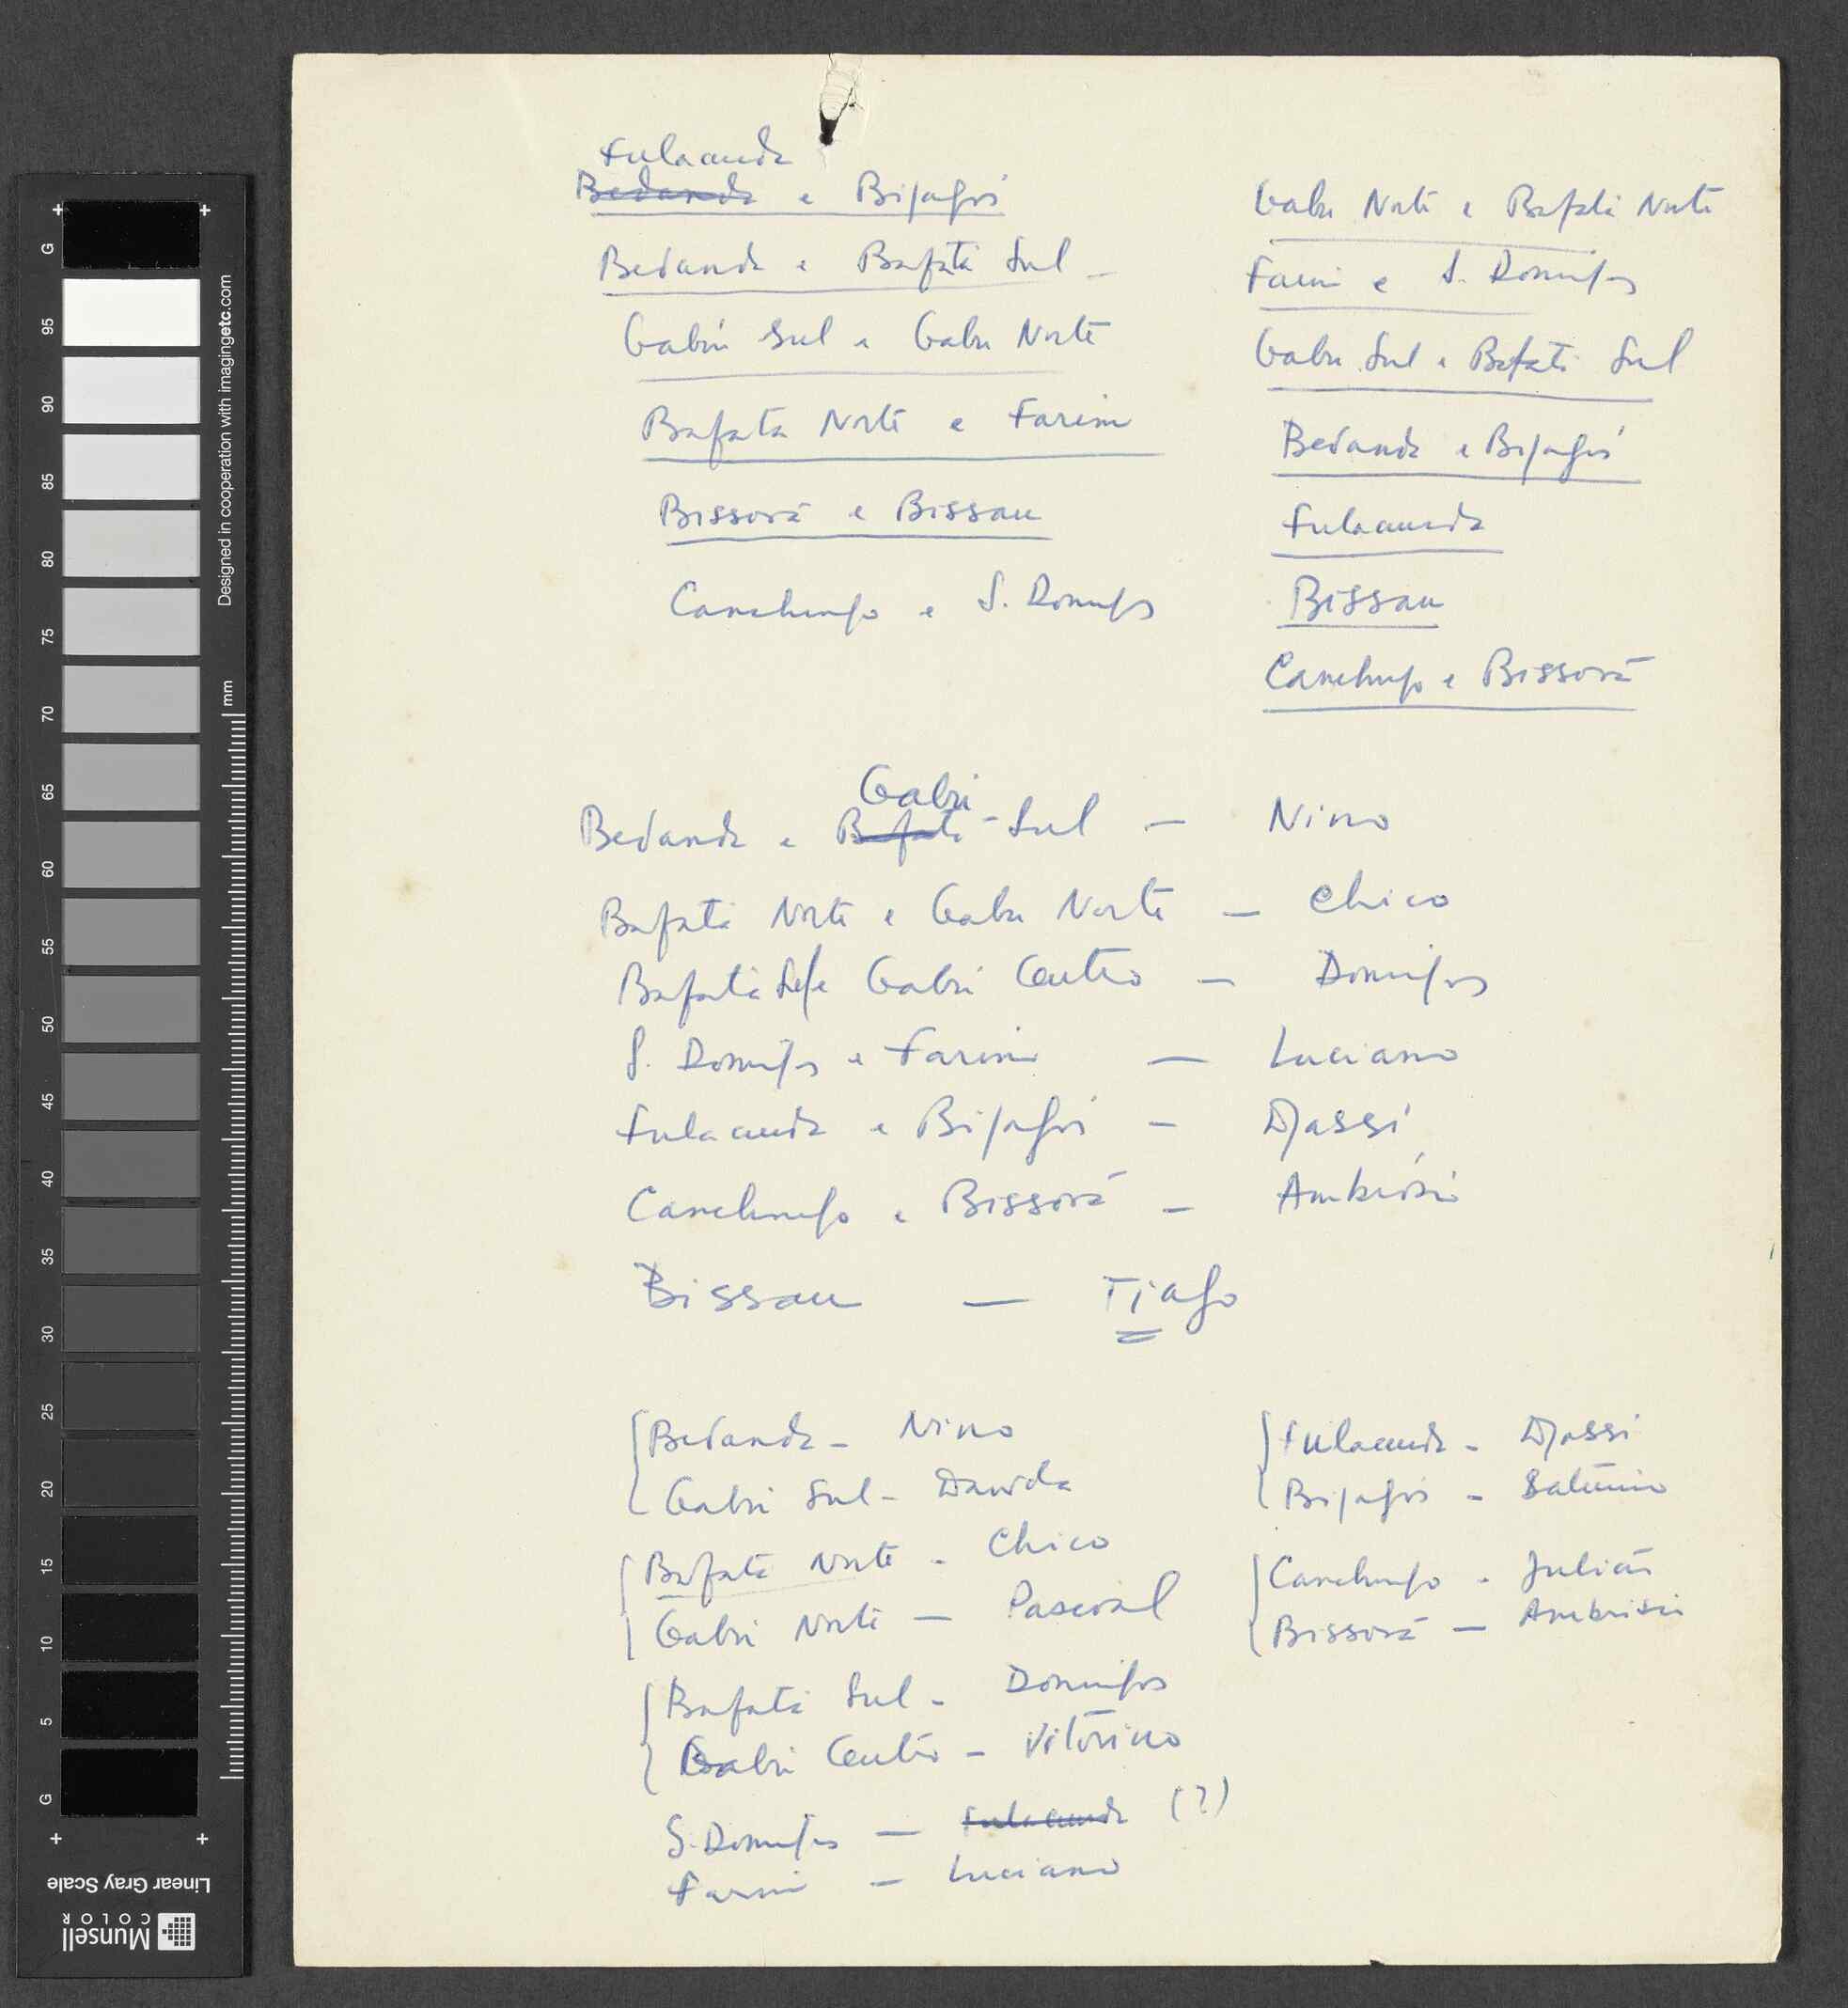 Fulacunda
Bedanda e Bijagós
Bedanda e Bafatá Sul –
Gabú Sul e Gabu Norte
Bafatá Norte e Farim
Bissorã e Bissau
Canchungo e S. Domingos
Gabu Norte e Bafatá Norte
Farim e S. Domingos
Gabu Sul e Bafatá Sul
Bedanda e Bijagós
Fulacunda
Bissau
Canchungo e Bissorã
Gabú
Bedanda e Bafatá - Sul — Nino
Bafatá Norte e Gabu Norte — Chico
Bafatá Sul e Gabú Centro — Domingos
S. Domingos e Farim — Luciano
Fulacunda e Bijagós — Djassi
Canchungo e Bissorã — Ambrósio
Bissau — Tiago
Bedanda – Nino
Gabú Sul – Dauda
Bafatá Norte – Chico
Gabú Norte – Pascoal
Bafatá Sul – Domingos
Gabú Centro – Vitorino
S. Domingos — Fulacunda (?)
Farim — Luciano
Fulacunda – Djassi
Bijagós – Saturnino
Canchungo – Julião
Bissorã — Ambrósio
G
95
90
85
80
75
70
65
60
55
50
45
40
35
30
25
20
15
10
5
G
mm
Designed in cooperation with imagingetc.com
Linear Gray Scale
Munsell
COLOR